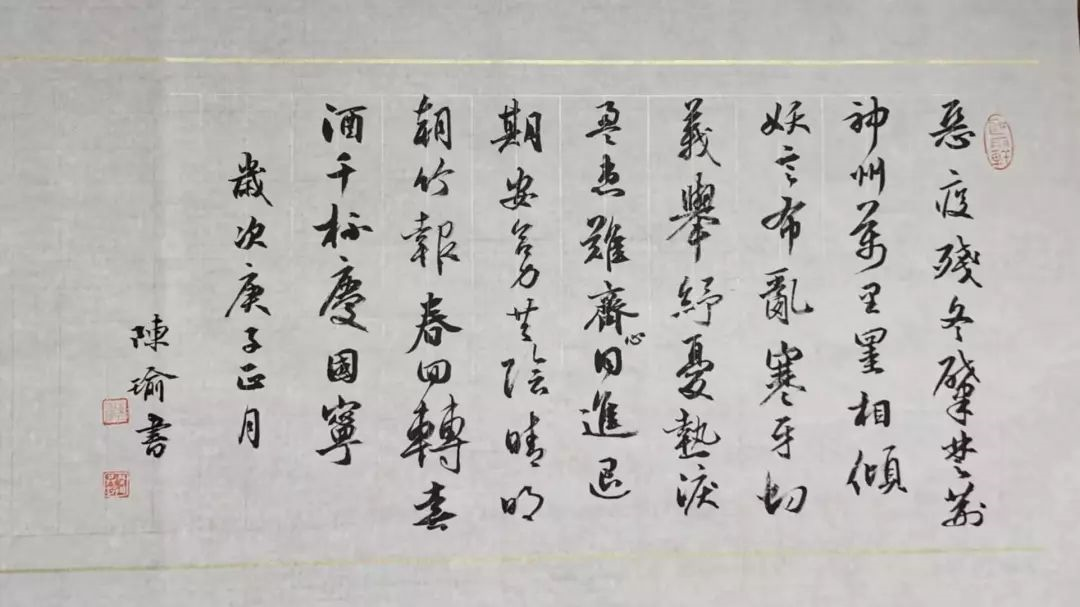 惡疫殘冬肇楚荊
神州萬里相傾
妖言布亂寒牙切
義舉紓憂熱淚
盈患難齊心同進退
期安合力共陰晴明
朝竹報春回轉喜
酒千杯慶國寧
歲次庚子正月
陳瑜書